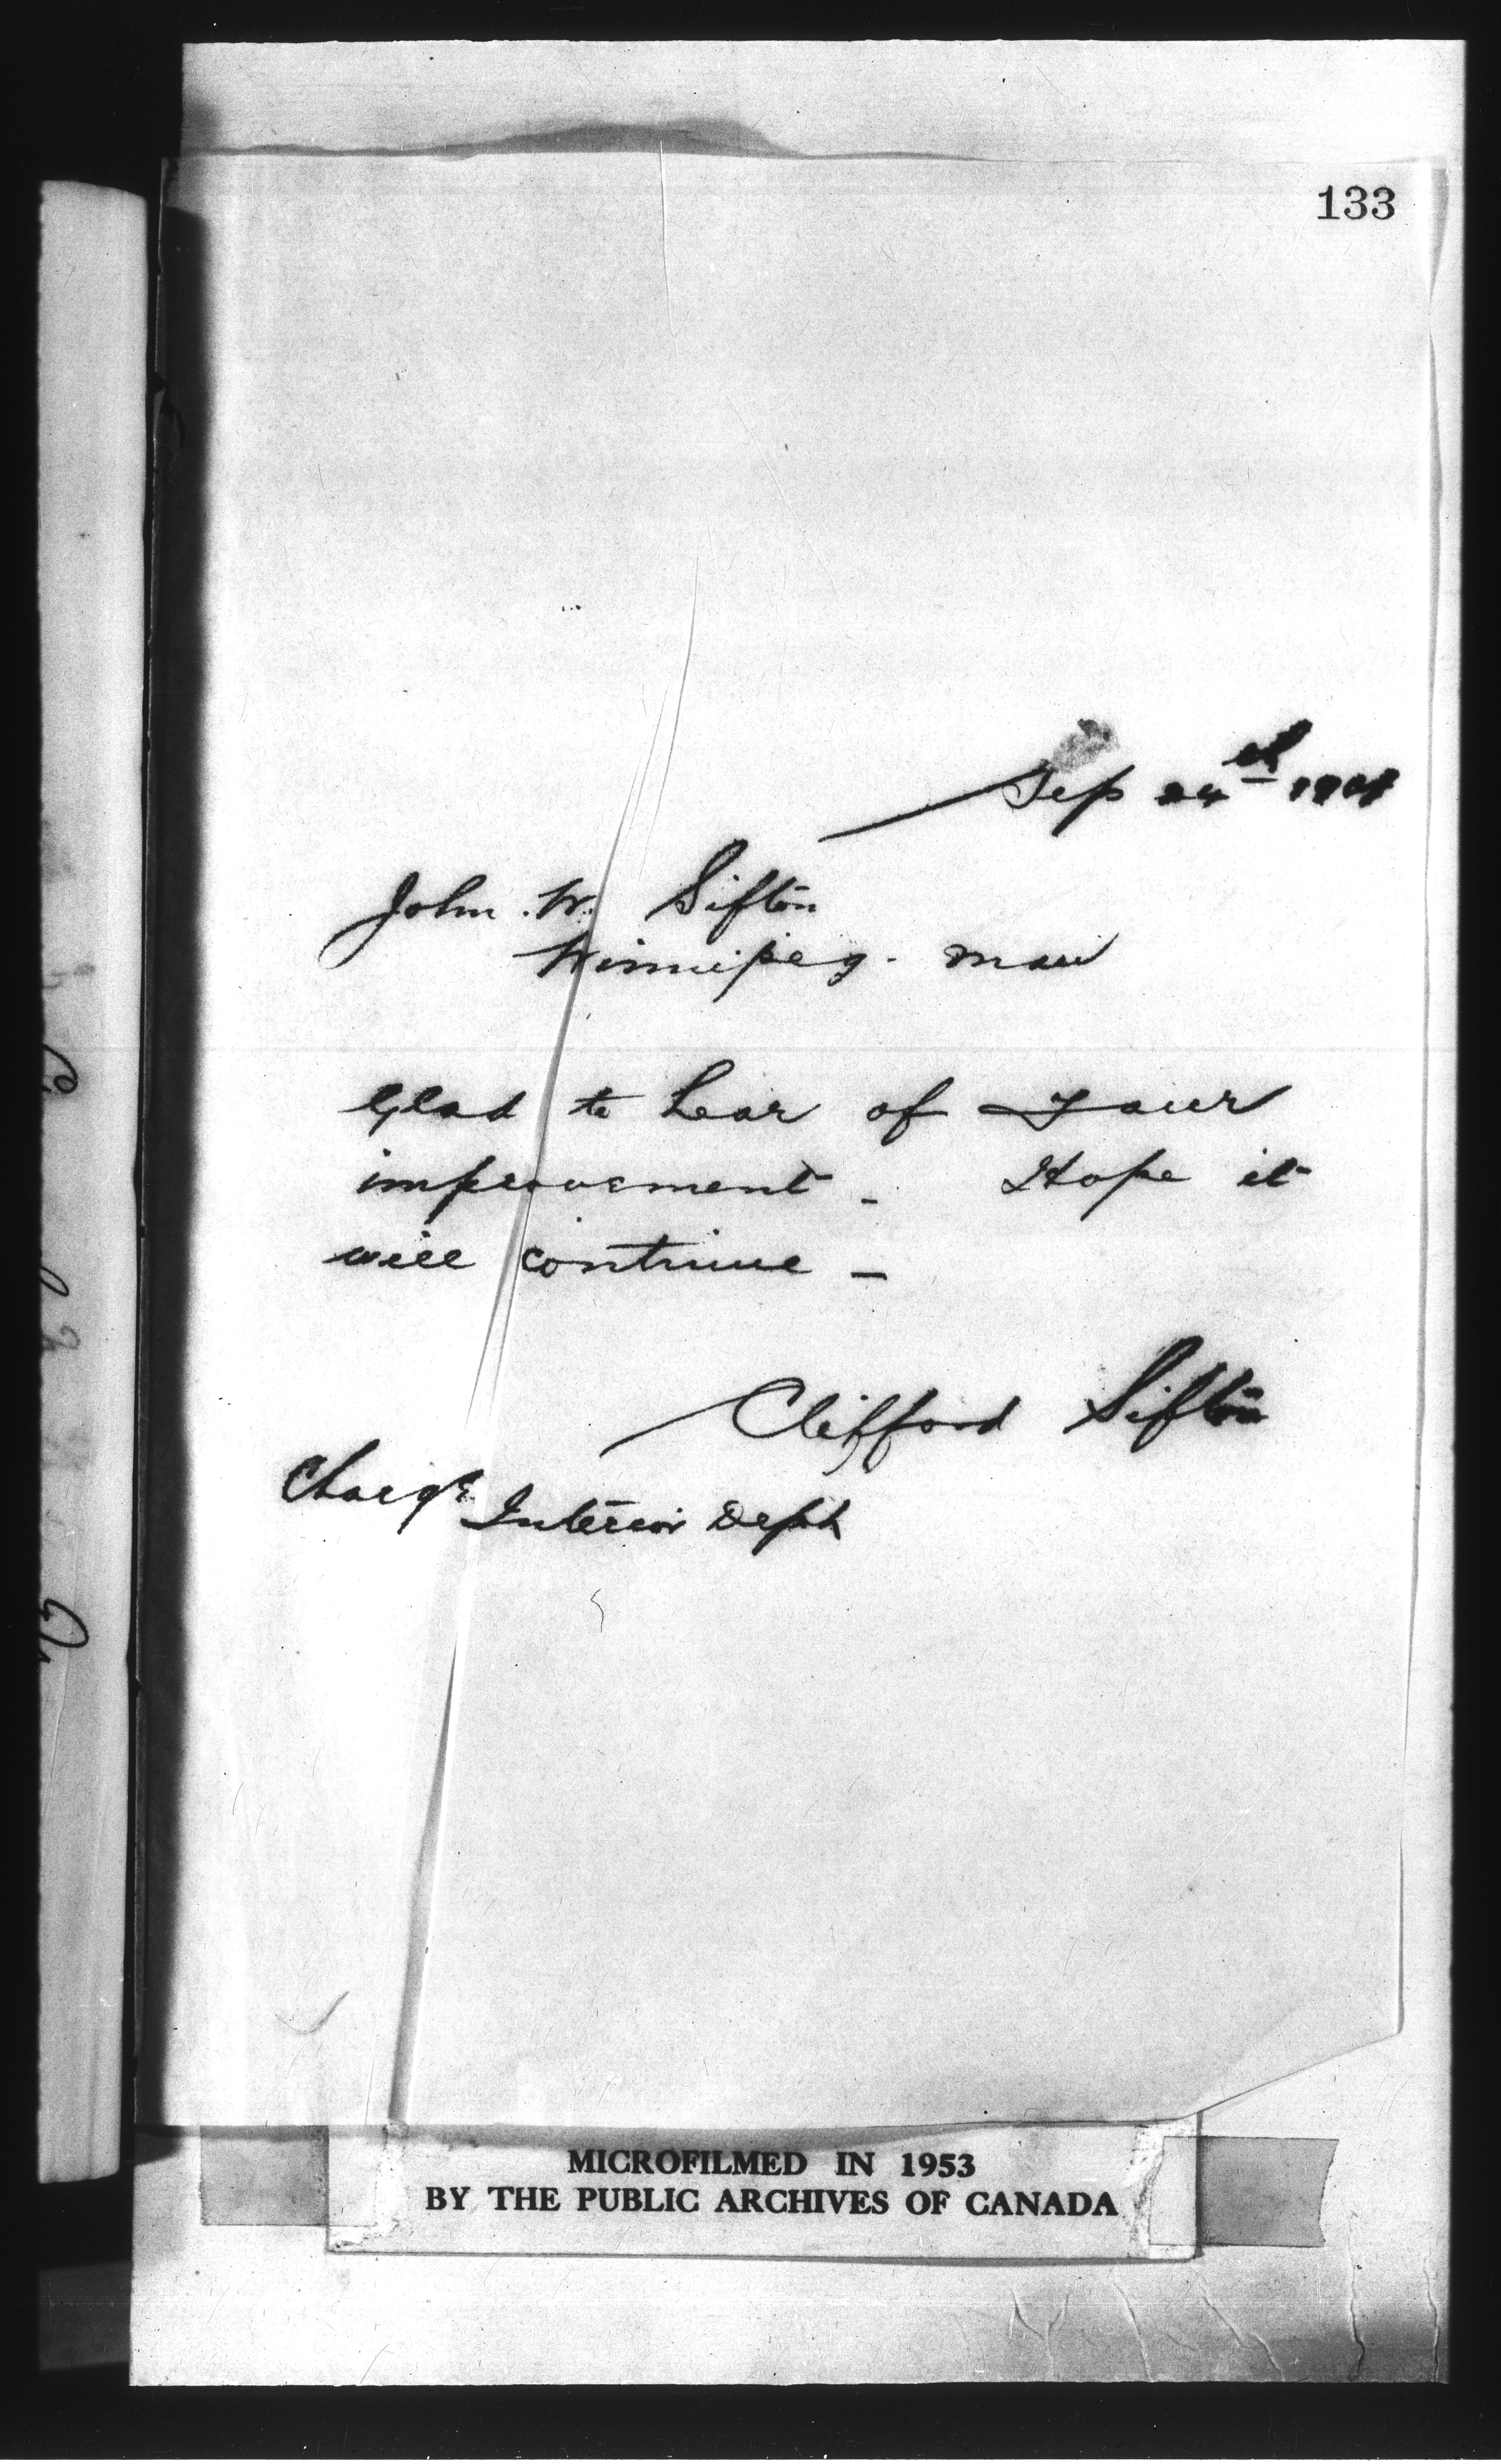 133
Sep 24th 1901
John. W. Sifton
Winnipeg. Man
Glad to hear of your
improvement _ Hope it
will continue _
Clifford Sifton
Charge
Interior Dept
MICROFILMED IN 1953
BY THE PUBLIC ARCHIVES OF CANADA